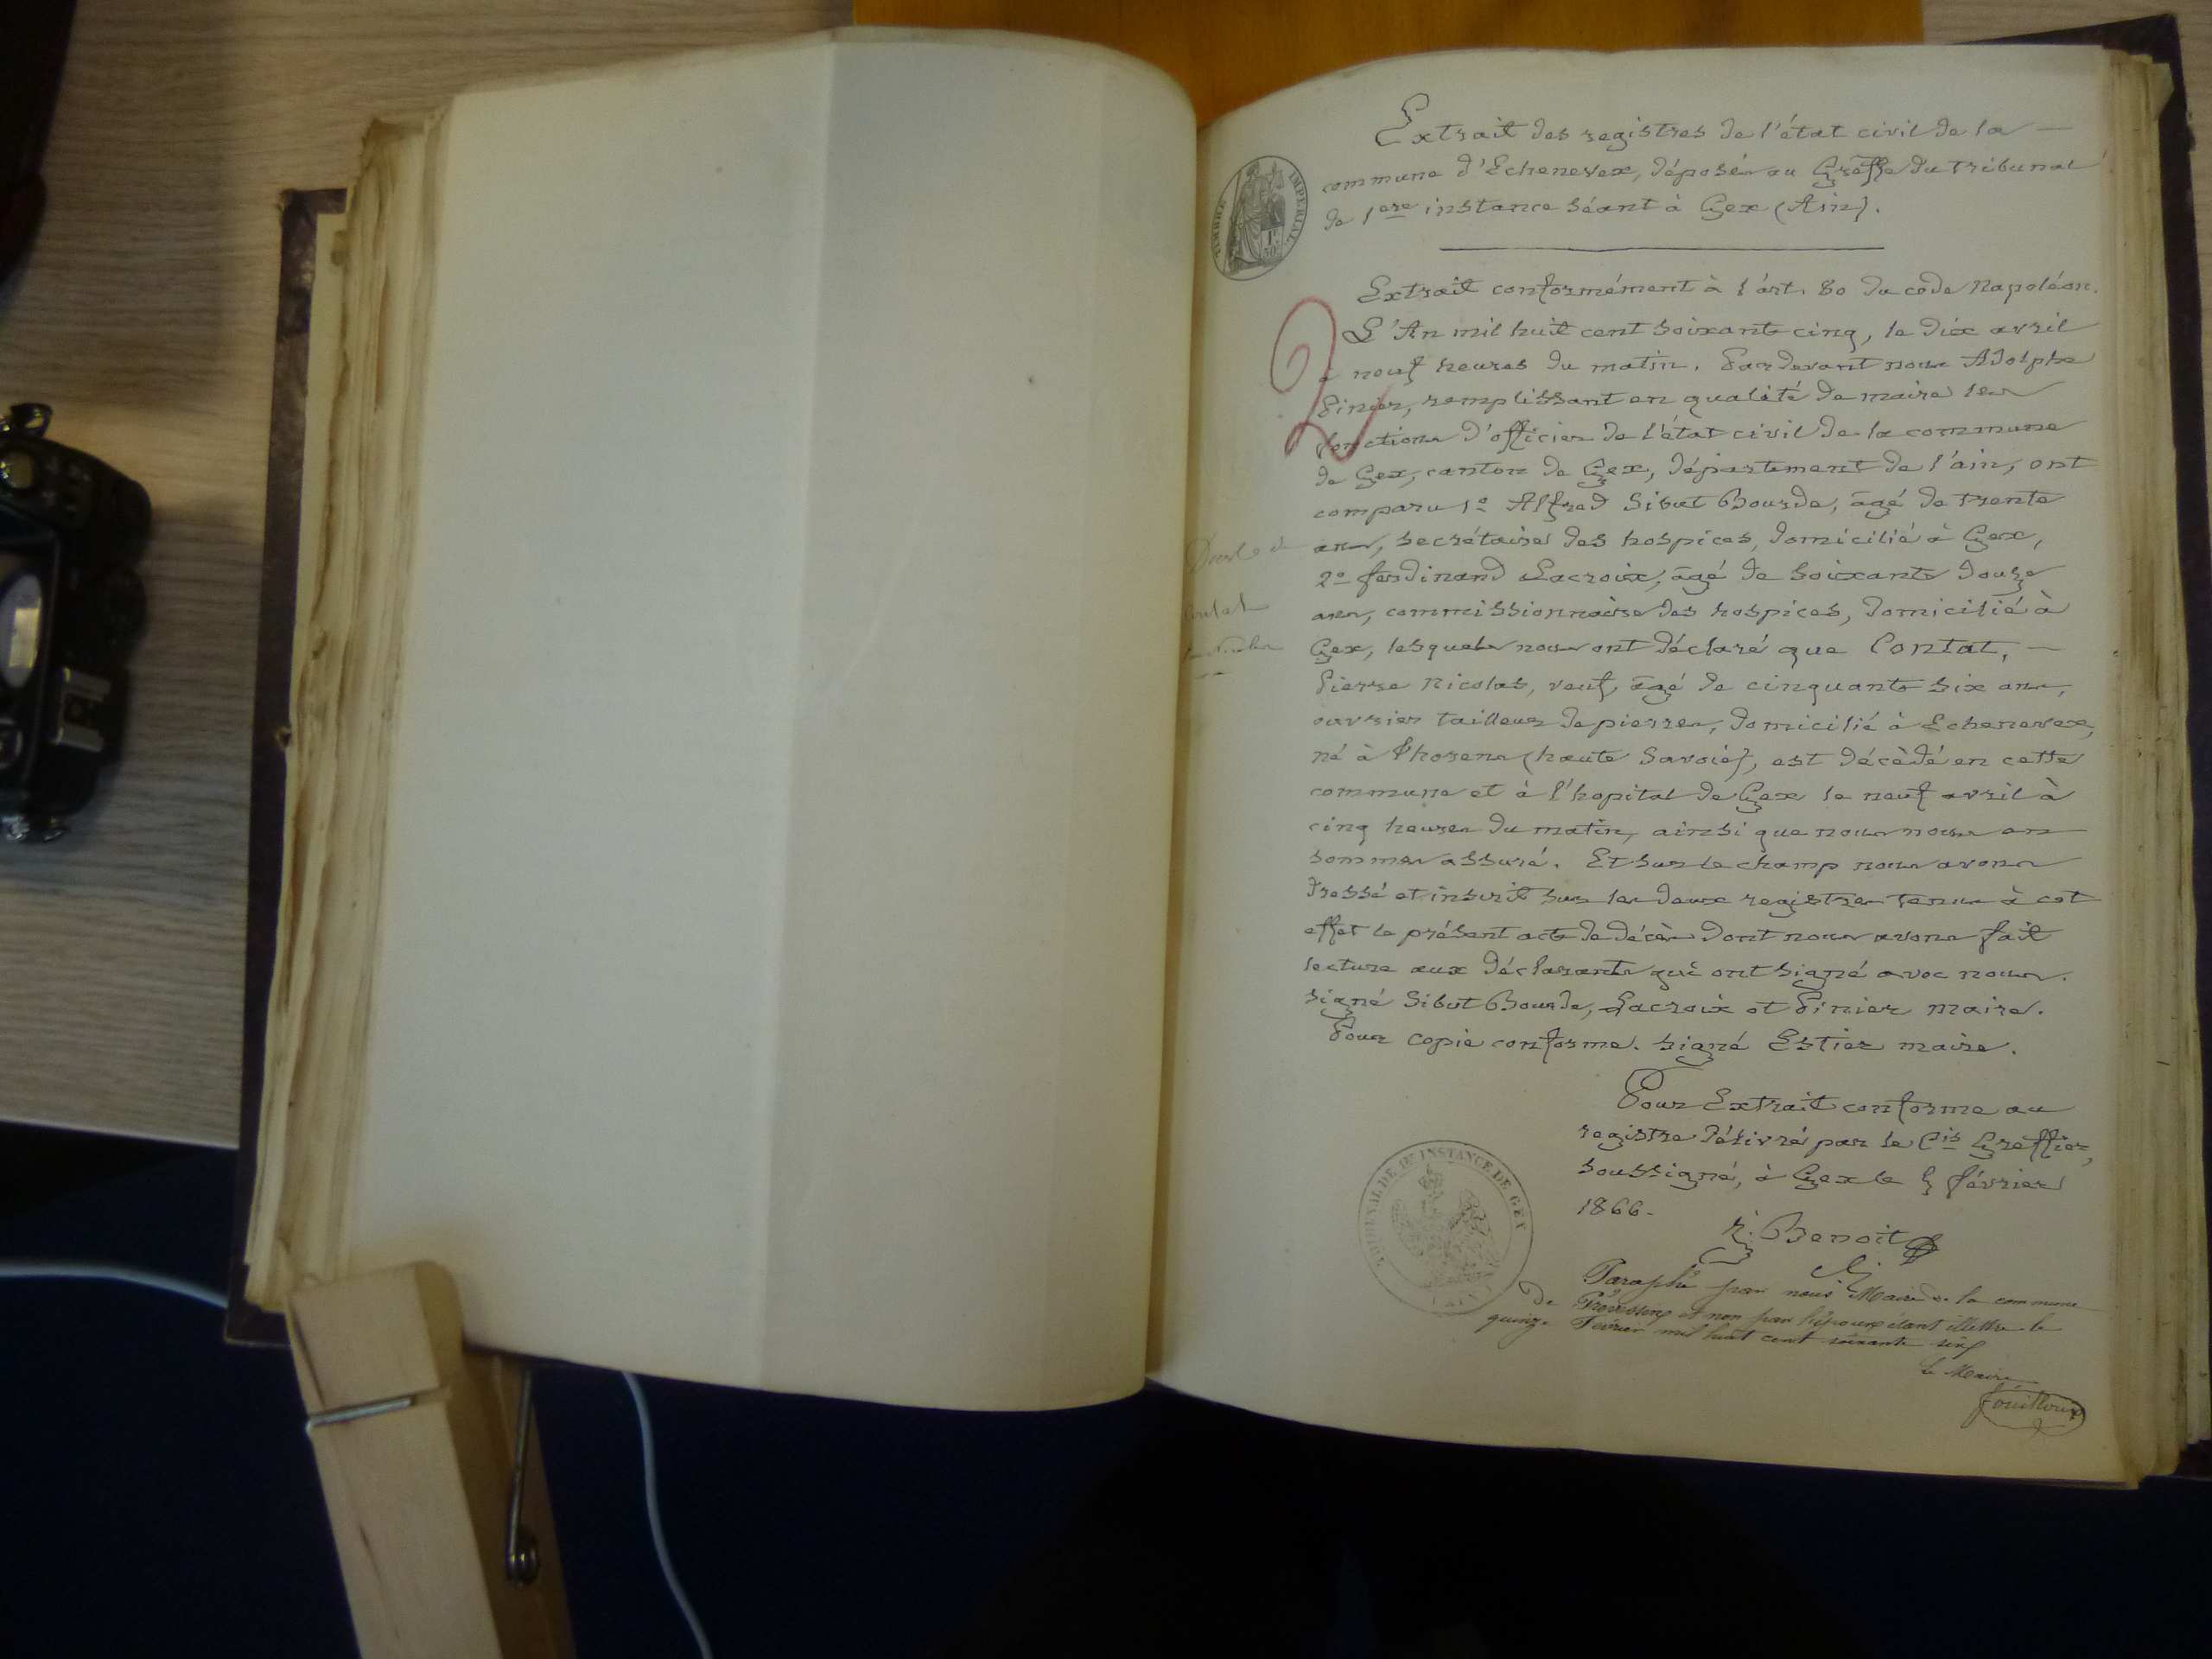 Extrait des registres de l'état civil de la —
commune d'Echenevex, déposés au Greffe du tribunal
de 1ere instance séant à Gex (Ain).
TIMBRE IMPERIAL
1F 50C
Extrait conformément à l'art. 80 du code Napoléon.
L'An mil huit cent soixante cinq, le dix avril
à neuf heures du matin. Pardevant nous Adolphe
Pinier, remplissant en qualité de maire les
fonctions d'officier de l'état civil de la commune
de Gex, canton de Gex, département de l'ain, ont
comparu 1º Alfred Sibut Bourde, âgé de trente
ans, secrétaire des hospices, domicilié à Gex,
2º ferdinand Lacroix, âgé de soixante douze
ans, commissionnaire des hospices, domicilié à
Gex, lesquels nous ont déclaré que Contat, —
Pierre Nicolas, veuf, âgé de cinquante six ans,
ouvrier tailleur de pierres, domicilié à Echenevex,
né à Thorens (haute Savoie), est décèdé en cette
commune et à l'hopital de Gex le neuf avril à
cinq heures du matin, ainsi que nous nous en
sommes assuré. Et sur le champ nous avons
dressé et inscrit sur les deux registres tenus à cet
effet le présent acte de décès dont nous avons fait
lecture aux déclarants qui ont signé avec nous.
signé Sibut Bourde, Lacroix et Pinier maire.
Pour copie conforme. signé Estier maire.
Décès de
Contat
Nicolas
Pour Extrait conforme au
registre délivré par le Cis Greffier,
soussigné, à Gex le 5 février
1866.
Benoit
TRIBUNAL DE 1RE INSTANCE DE GEX
(AIN)
Paraphé par nous Maire de la commune
de et non par l'époux étant illettré le
quinze Février mil huit cent soixante six
Le Maire
fouilloux